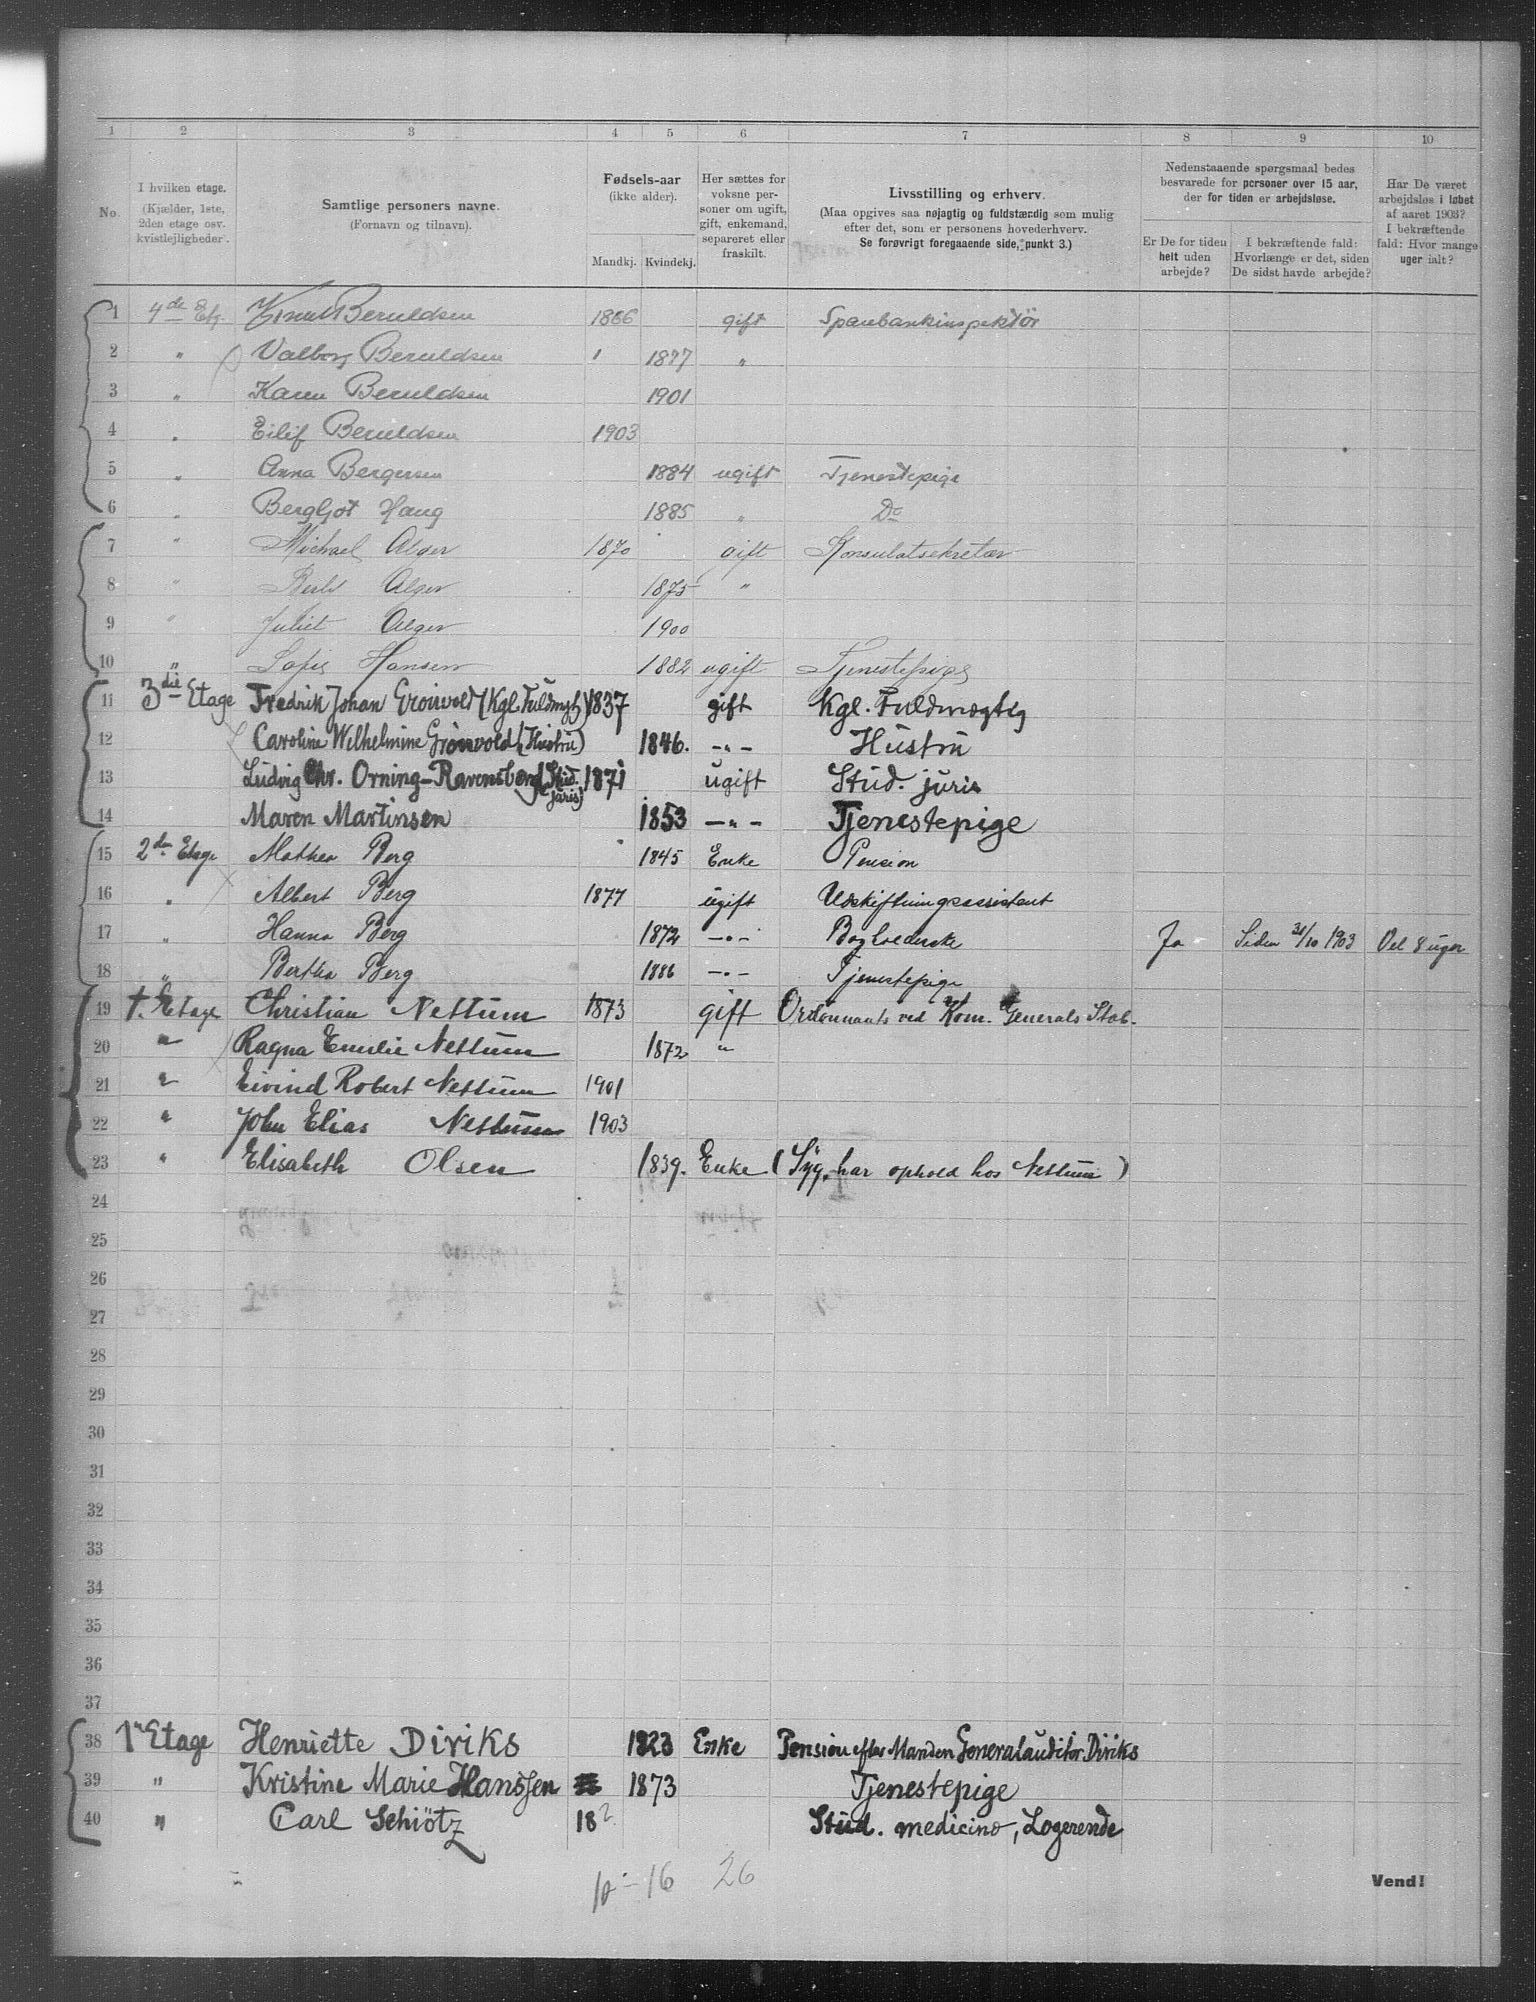 1 2 3 4 5 6 7 8 9 10
No.
I hvilken etage.
(Kjælder, 1ste,
2den etage osv.
kvistlejligheder.
Samtlige personers navne.
(Fornavn og tilnavn).
Fødsels-aar
(ikke alder).
Mandkj. Kvindekj.
Her sættes for
voksne per-
soner om ugift,
gift, enkemand,
separeret eller
fraskilt.
Livsstilling og erhverv.
(Maa opgives saa nøjagtig og fuldstændig som mulig
efter det, som er personens hovederhverv.
Se forøvrigt foregaaende side, punkt 3.)
Nedenstaaende spørgsmaal bedes
besvarede for personer over 15 aar,
der for tiden er arbejdsløse.
Er De for tiden
helt uden
arbejde?
I bekræftende fald:
Hvorlænge er det, siden
De sidst havde arbejde?
Har De været
arbejdsløs i løbet
af aaret 1903?
I bekræftende
fald: Hvor mange
uger ialt?
1 4de Etg. Knut Beruldsen 1866 gift Sparebankinspektör
2 " Valborg Beruldsen 1877 "
3 " Karen Beruldsen 1901
4 " Eilif Beruldsen 1903
5 " Anna Bergersen 1884 ugift Tjenestepige
6 " Bergljot Haug 1885 " Do
7 " Michael Alger 1870 gift Konsulatsekretær
8 " Alger 1875 "
9 " Juliet Alger 1900
10 " Sofie Hansen 1882 ugift Tjenestepige
11 3die Etage Fredrik Johan Grönvold (Kgl. Fuldmgt) 1837 gift Kgl. Fuldmægtig
12 Caroline Wilhelmine Grönvold (Hustru) 1846. -"- Hustru
13 Ludvig Chr. Orning-Ravensborg (Stud. juris) 1871 ugift Stud. juris
14 Maren Martinsen 1853 -"- Tjenestepige
15 2den Etage Mathea Berg 1845 Enke Pension
16 " Albert Berg 1877 ugift Udskiftningsassistent
17 " Hanna Berg 1872 -"- Bogholderske Ja Siden 31/10 1903 Vel 8 uger
18 " Bertha Berg 1886 -"- Tjenestepige
19 1. Etage Christian Nettum 1873 gift Ordonnants ved Kom. Generals Stab.
20 " Ragna Emilie Nettum 1872 "
21 " Eivind Robert Nettum 1901
22 " John Elias Nettum 1903
23 " Elisabeth Olsen 1839. Enke (Syg, har ophold hos Nettum)
24
25
26
27
28
29
30
31
32
33
34
35
36
37
38 1ste Etage Henriette Diriks 1823 Enke Pension efter Manden Generalauditør Diriks
39 " Kristine Marie Hanssen 1873 Tjenestepige
40 " Carl Schiötz 18? Stud. medicine, Logerende
10-16 26
Vend!